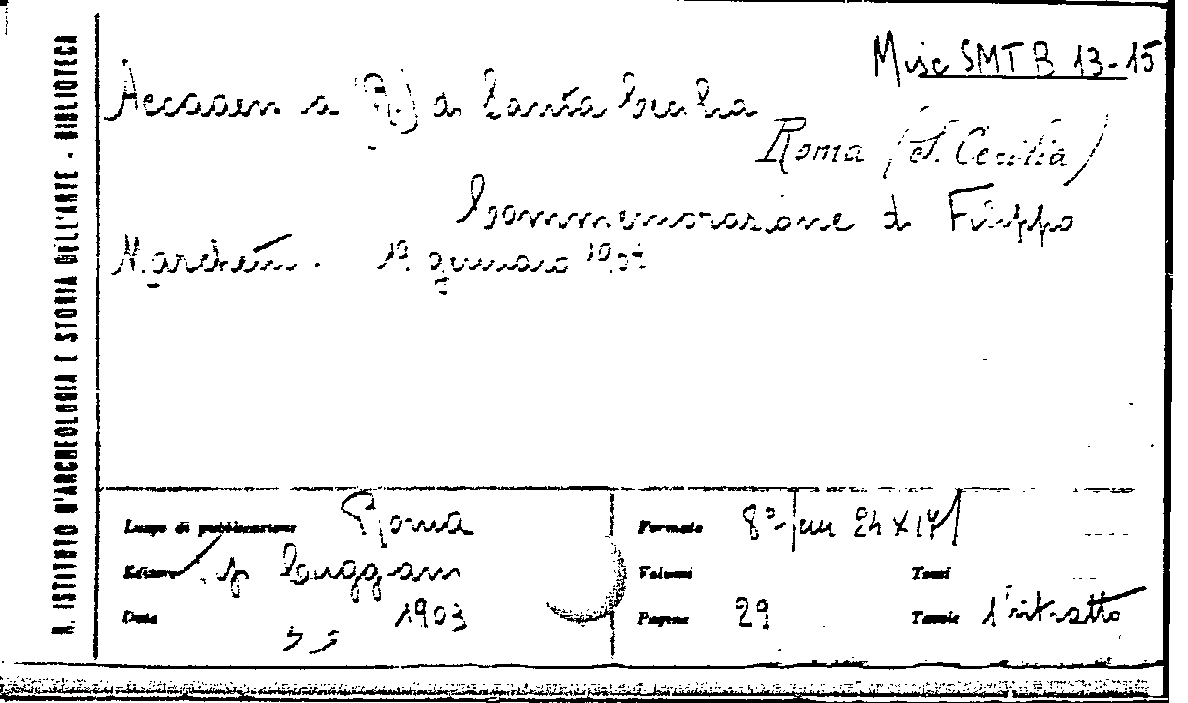 Misc SMT B 13-15
Accademia (R.) di Santa Cecilia
Roma (S. Cecilia)
Commemorazione di Filippo
Marchetti. 19 gennaio 1903
R. ISTITUTO D'ARCHEOLOGIA E STORIA DELL'ARTE - BIBLIOTECA
Luogo di pubblicazione Roma
Formato 8° (cm 24 x 17)
Editore tip Cuggiani
Volumi Tomi
Data 1903
Pagine 29 Tavole 1 ritratto